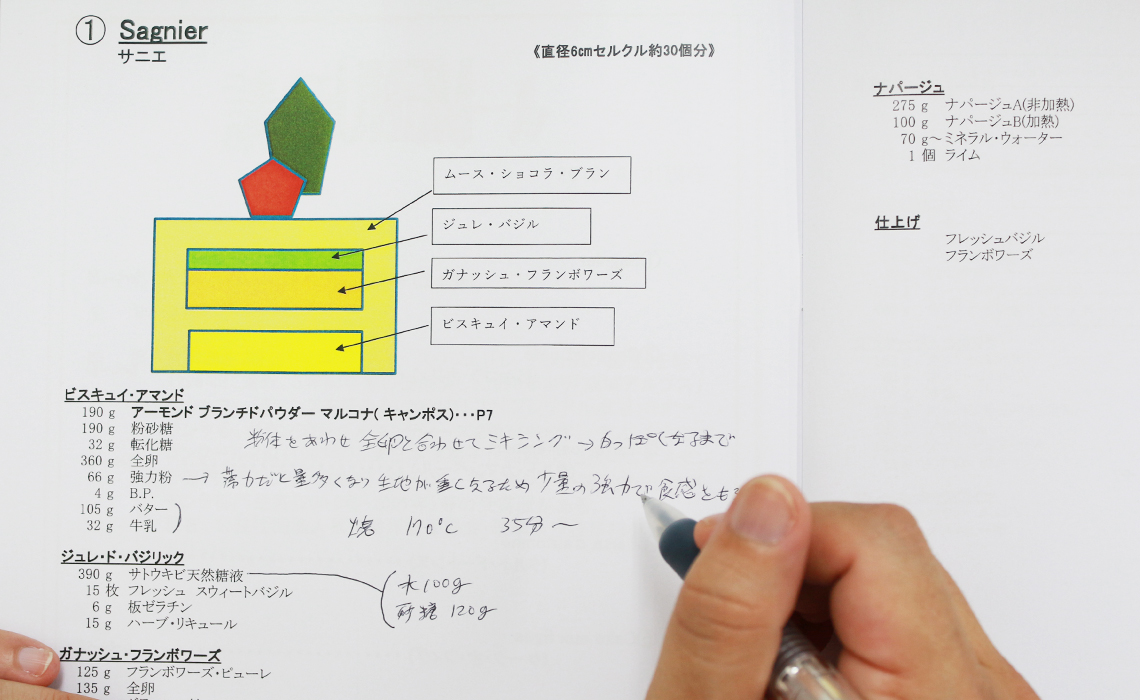 ① Sagnier
サニエ
《直径6cmセルクル約30個分》
ムース・ショコラ・ブラン
ジュレ・バジル
ガナッシュ・フランボワーズ
ビスキュイ・アマンド
ビスキュイ・アマンド
190 g アーモンド ブランチドパウダー マルコナ( キャンポス)・・・P7
190 g 粉砂糖
32 g 転化糖
粉体をあわせ 全卵と合わせてミキシング → 白っぽくなるまで
360 g 全卵
66 g 強力粉 → 薄力だと量多くなり 生地が重くなるため 少量の強力で食感をも
4 g B.P.
105 g バター
32 g 牛乳
焼 170℃ 35分〜
ジュレ・ド・バジリック
390 g サトウキビ天然糖液
水100g
砂糖 120g
15 枚 フレッシュ スウィートバジル
6 g 板ゼラチン
15 g ハーブ・リキュール
ガナッシュ・フランボワーズ
125 g フランボワーズ・ピューレ
135 g 全卵
ナパージュ
275 g ナパージュA(非加熱)
100 g ナパージュB(加熱)
70 g〜ミネラル・ウォーター
1 個 ライム
仕上げ
フレッシュバジル
フランボワーズ